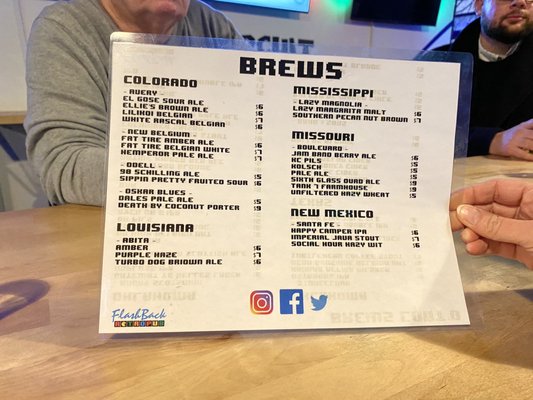 BREWS
COLORADO
- AVERY -
EL GOSE SOUR ALE $6
ELLIE'S BROWN ALE $6
LILIKOI BELGIAN $6
WHITE RASCAL BELGIAN $7
- NEW BELGIUM -
FAT TIRE AMBER ALE $6
FAT TIRE BELGIAN WHITE $6
HEMPEROR PALE ALE $7
- ODELL -
90 SCHILLING ALE $5
SIPPIN PRETTY FRUITED SOUR $6
- OSKAR BLUES -
DALES PALE ALE $5
DEATH BY COCONUT PORTER $9
LOUISIANA
- ABITA -
AMBER $6
PURPLE HAZE $7
TURBO DOG BROWN ALE $6
MISSISSIPPI
- LAZY MAGNOLIA -
LAZY MARGARITA MALT $6
SOUTHERN PECAN NUT BROWN $7
MISSOURI
- BOULEVARD -
JAM BAND BERRY ALE $6
KC PILS $5
KOLSCH $5
PALE ALE $5
SIXTH GLASS QUAD ALE $9
TANK 7 FARMHOUSE $9
UNFILTERED HAZY WHEAT $5
NEW MEXICO
- SANTA FE -
HAPPY CAMPER IPA $6
IMPERIAL JAVA STOUT $7
SOCIAL HOUR HAZY WIT $6
FlashBack
RETROPUB